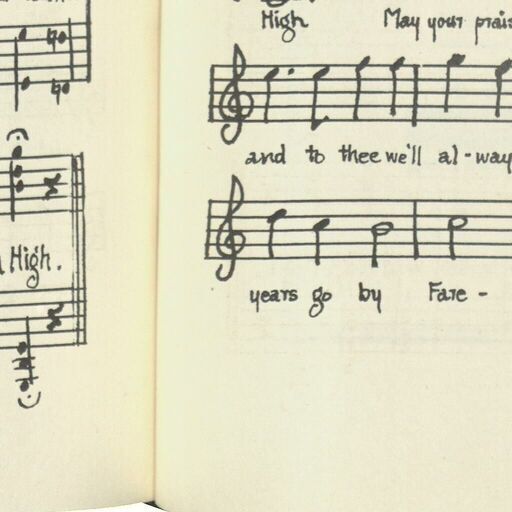 High.
High May your
and to thee we'll al-way
years go by Fare-